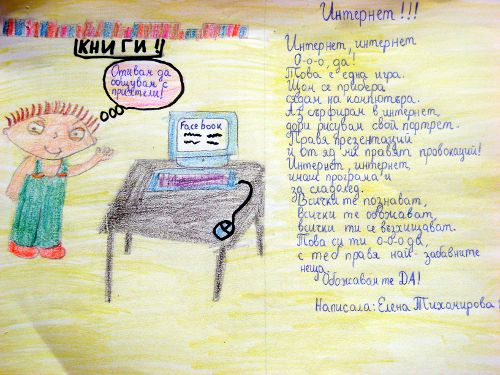 КНИГИ!
Отивам да
общувам с
приятели!
Facebook
Интернет!!!
Интернет, интернет
О-о-о, да!
Това е една игра.
Щом се прибера
сядам на компютъра.
Аз сърфирам в интернет,
дори рисувам свой портрет.
Правя презентации
и от яд ми правят провокации!
Интернет, интернет,
имаш програма и
за сладолед.
Всички те познават,
всички те обожават,
всички ти се възхищават.
Това си ти о-о-о да,
с теб правя най-забавните
неща.
Обожавам те ДА!
Написала: Елена Тихомирова